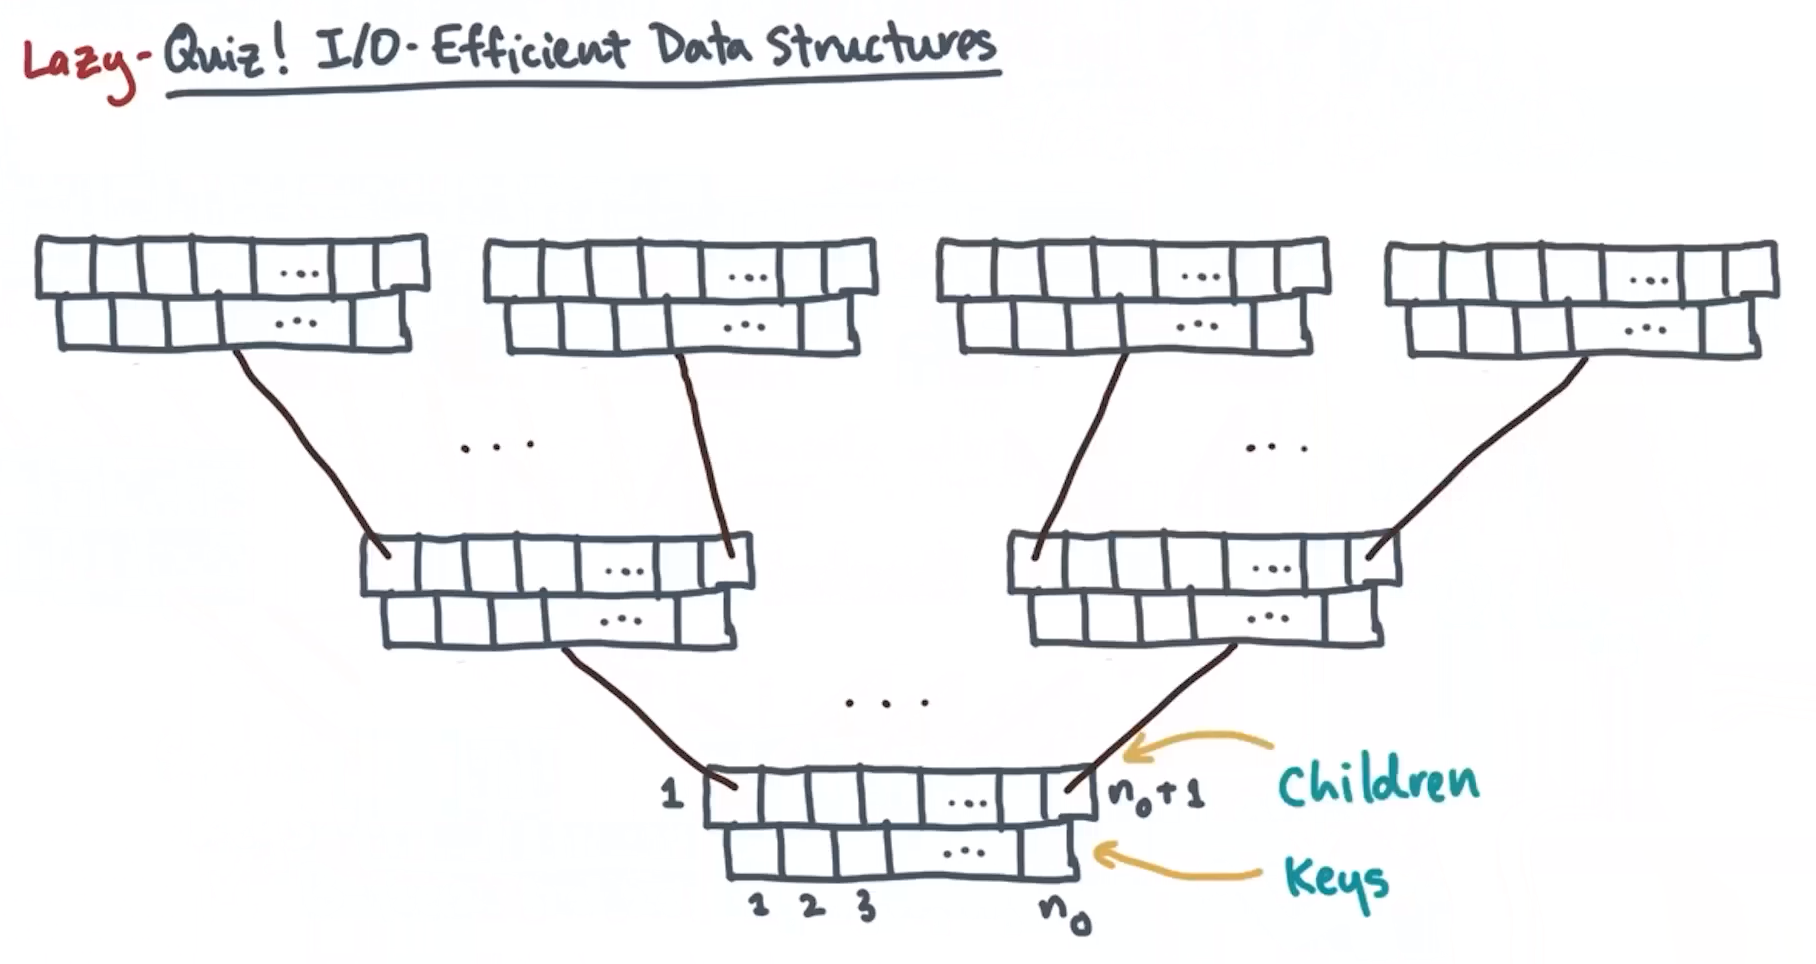 Lazy-Quiz! I/O-Efficient Data Structures
...
...
...
...
...
...
...
...
... ...
...
...
...
...
...
Children
1
...
n₀+1
...
Keys
1 2 3 n₀